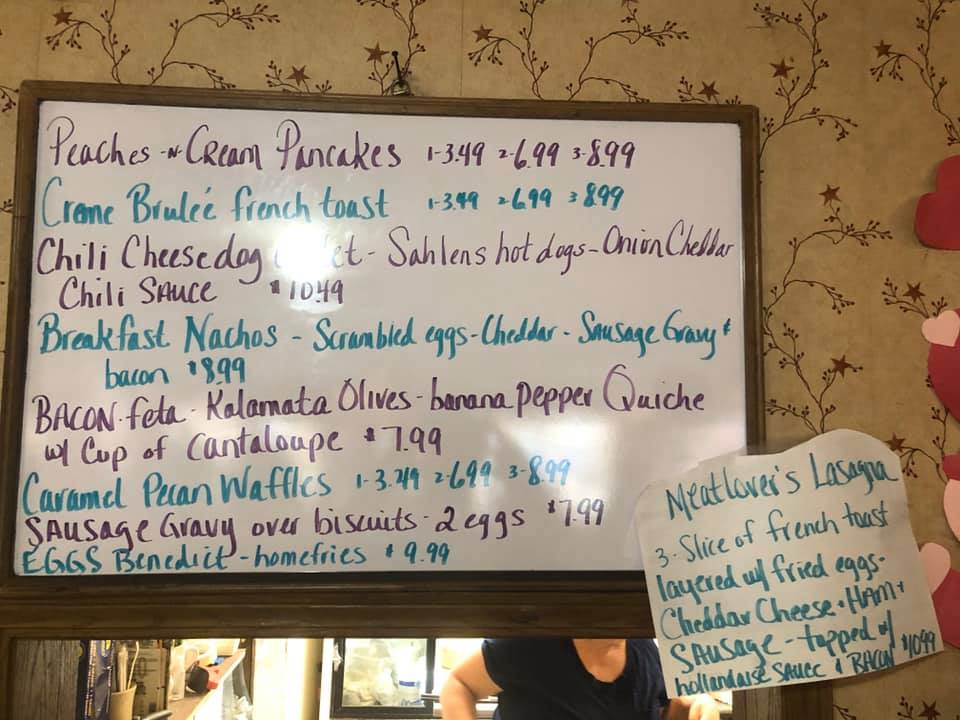 Peaches -n- Cream Pancakes 1-3.49 2-6.99 3-8.99
Creme Brulée french toast 1-3.49 2-6.99 3-8.99
Chili Cheesedog - Sahlens hot dogs - Onion Cheddar
Chili Sauce $10.49
Breakfast Nachos - Scrambled eggs - Cheddar - Sausage Gravy &
bacon $8.99
BACON - feta - Kalamata Olives - banana pepper Quiche
w/ Cup of Cantaloupe $7.99
Caramel Pecan Waffles 1-3.49 2-6.99 3-8.99
SAUSAGE Gravy over biscuits - 2 eggs $7.99
EGGS Benedict - homefries $9.99
Meatlover's Lasagna
3-Slice of french toast
layered w/ fried eggs-
Cheddar Cheese - HAM +
SAUSAGE - topped w/
hollandaise SAUCE & BACON $10.99